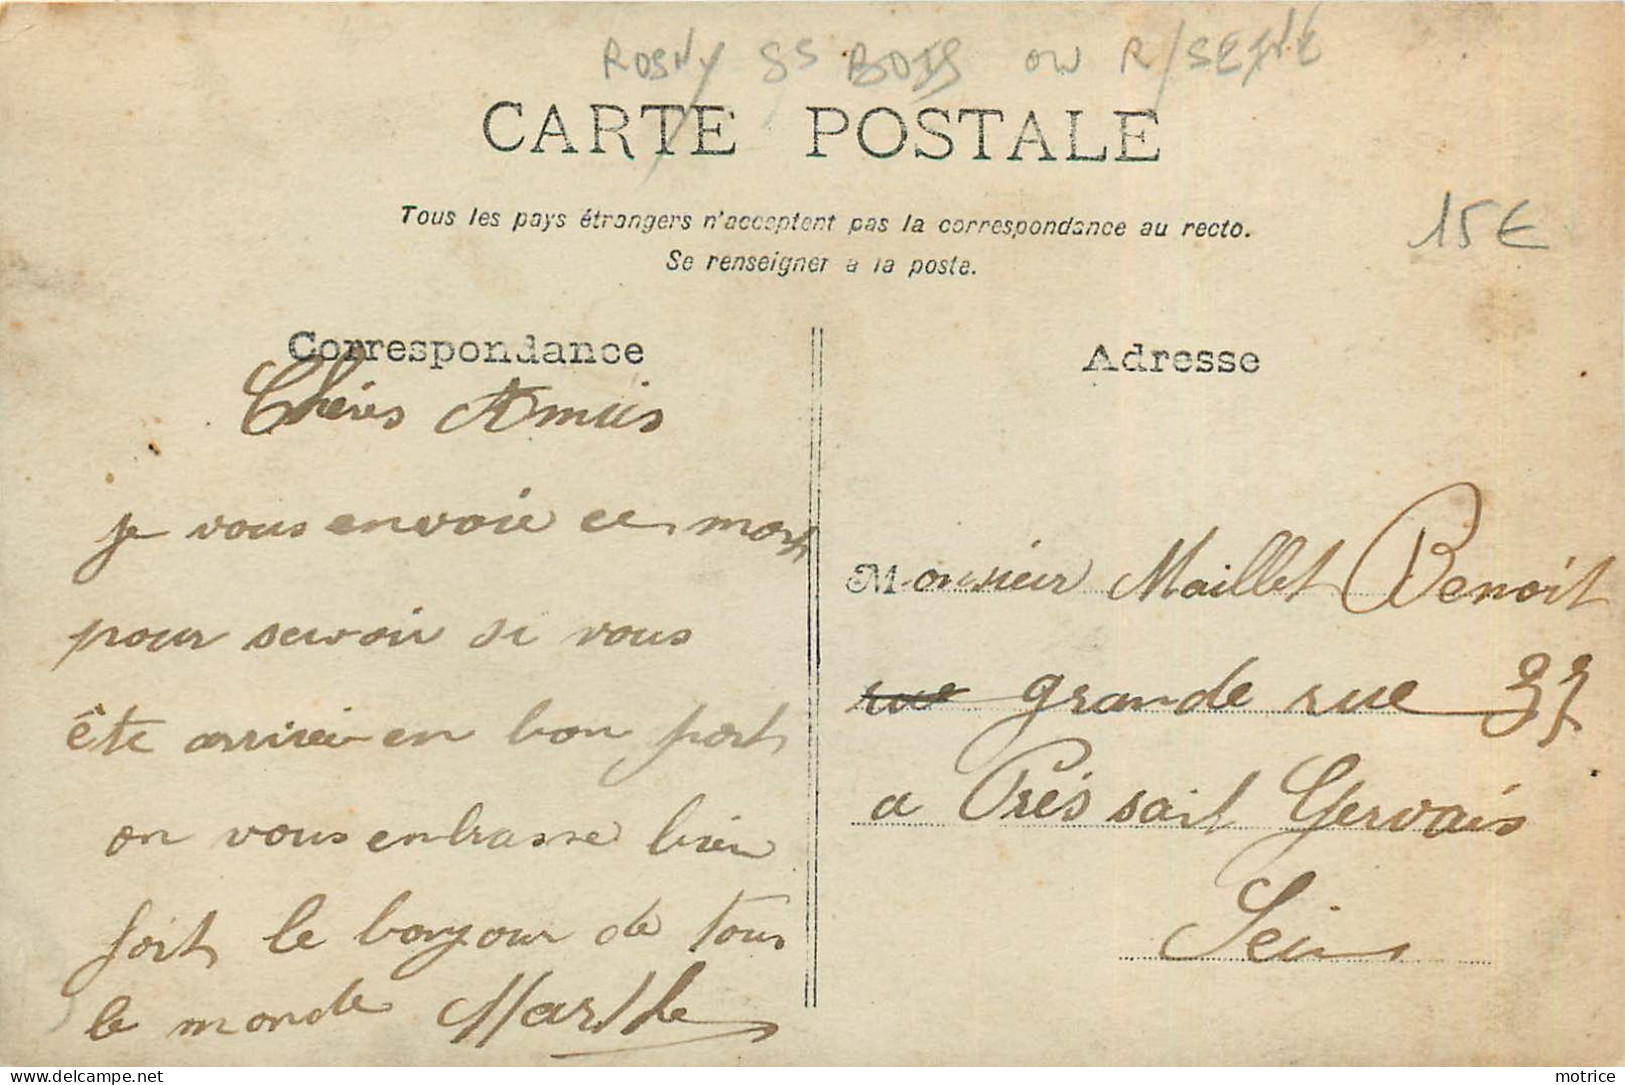 ROSNY SS BOIS OU R/SEINE
CARTE POSTALE
Tous les pays étrangers n'acceptent pas la correspondance au recto.
Se renseigner à la poste.
15€
Correspondance
Chéres Amiis
je vous envoie ce mots
pour savoir si vous
ête arriveé en bon port
on vous enbrasse bien
fort le bonjour de tous
le monde Marthe
Adresse
Monsieur Maillet Benoit
rue grande rue 33
a Prés sait Gervais
Seine
delcampe.net
motrice